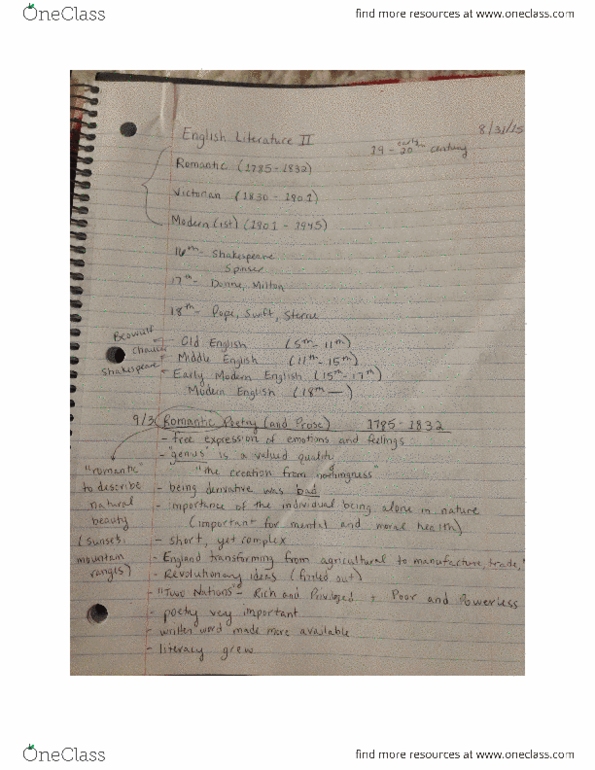 OneClass
find more resources at www.oneclass.com
8/31/15
English Literature II
19 - early 20th century
Romantic (1785 - 1832)
Victorian (1830 - 1901)
Modern (ist) (1901 - 1945)
16th - Shakespeare
Spinser
17th - Donne, Milton
18th - Pope, Swift, Sterne
Beowulf - Old English (5th - 11th)
Chaucer - Middle English (11th - 15th)
Shakespeare - Early Modern English (15th - 17th)
Modern English (18th —)
9/3 Romantic Poetry (and Prose) 1785 - 1832
- free expression of emotions and feelings
- "genius" is a valued quality
"the creation from nothingness"
- being derivative was bad
- importance of the individual being alone in nature
(important for mental and moral health)
- short, yet complex
- England transforming from agricultural to manufacture, trade,
- Revolutionary ideas (out)
- "Two Nations" - Rich and Privileged , Poor and Powerless
- poetry very important
- written word made more available
- literacy grew
"romantic"
to describe
natural
beauty
(sunset,
mountain
ranges)
OneClass
find more resources at www.oneclass.com